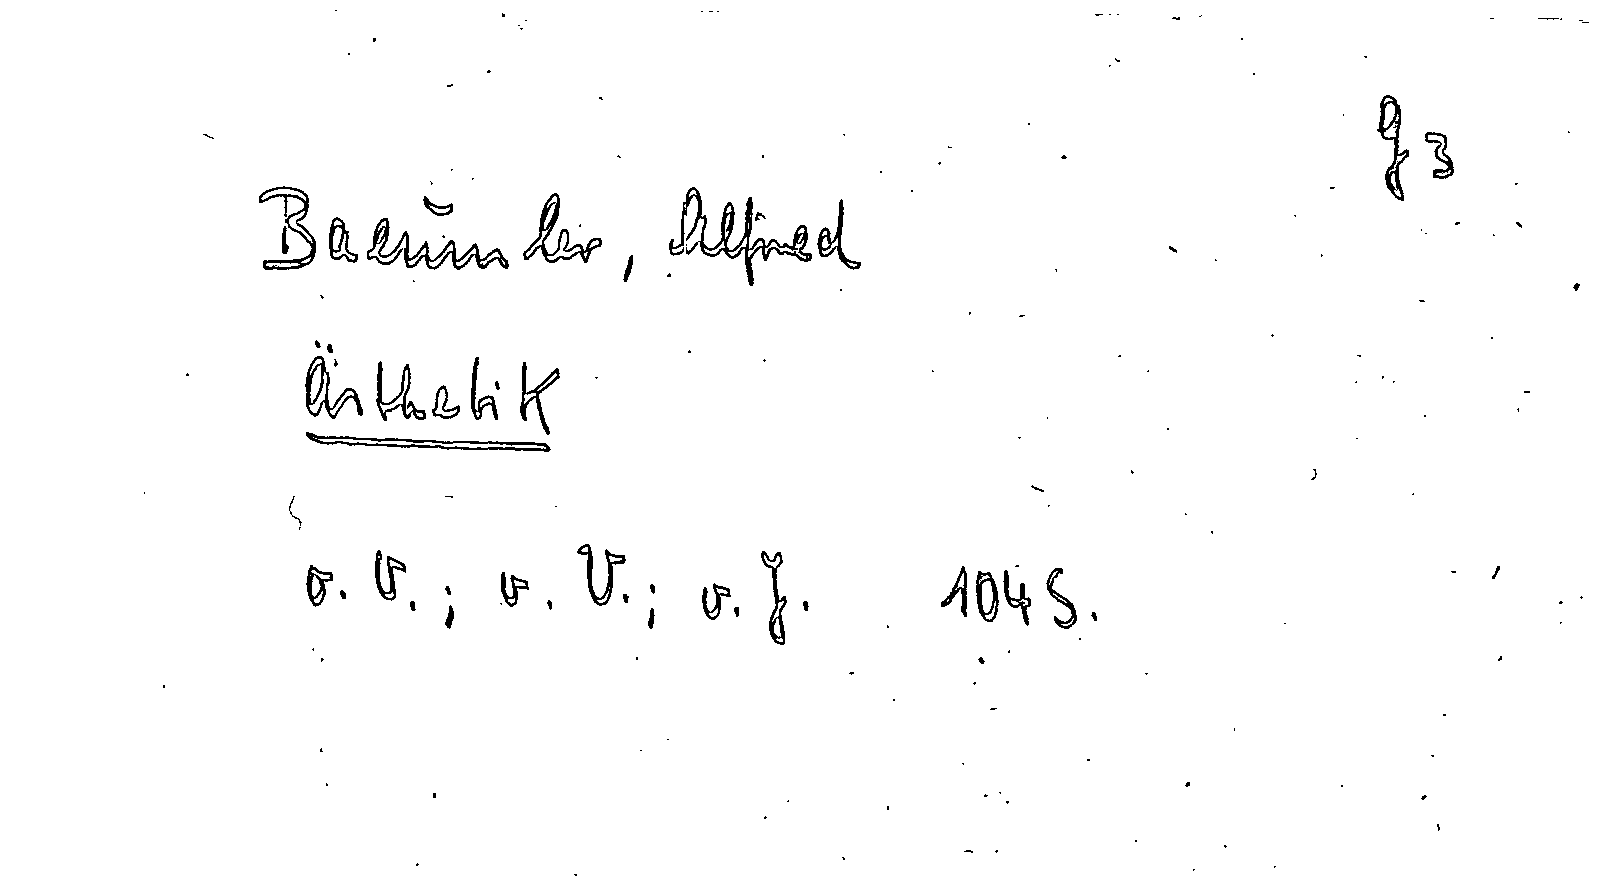 g 3
Baeumler, Alfred
Ästhetik
o. O.; o. V.; o. J. 104 S.